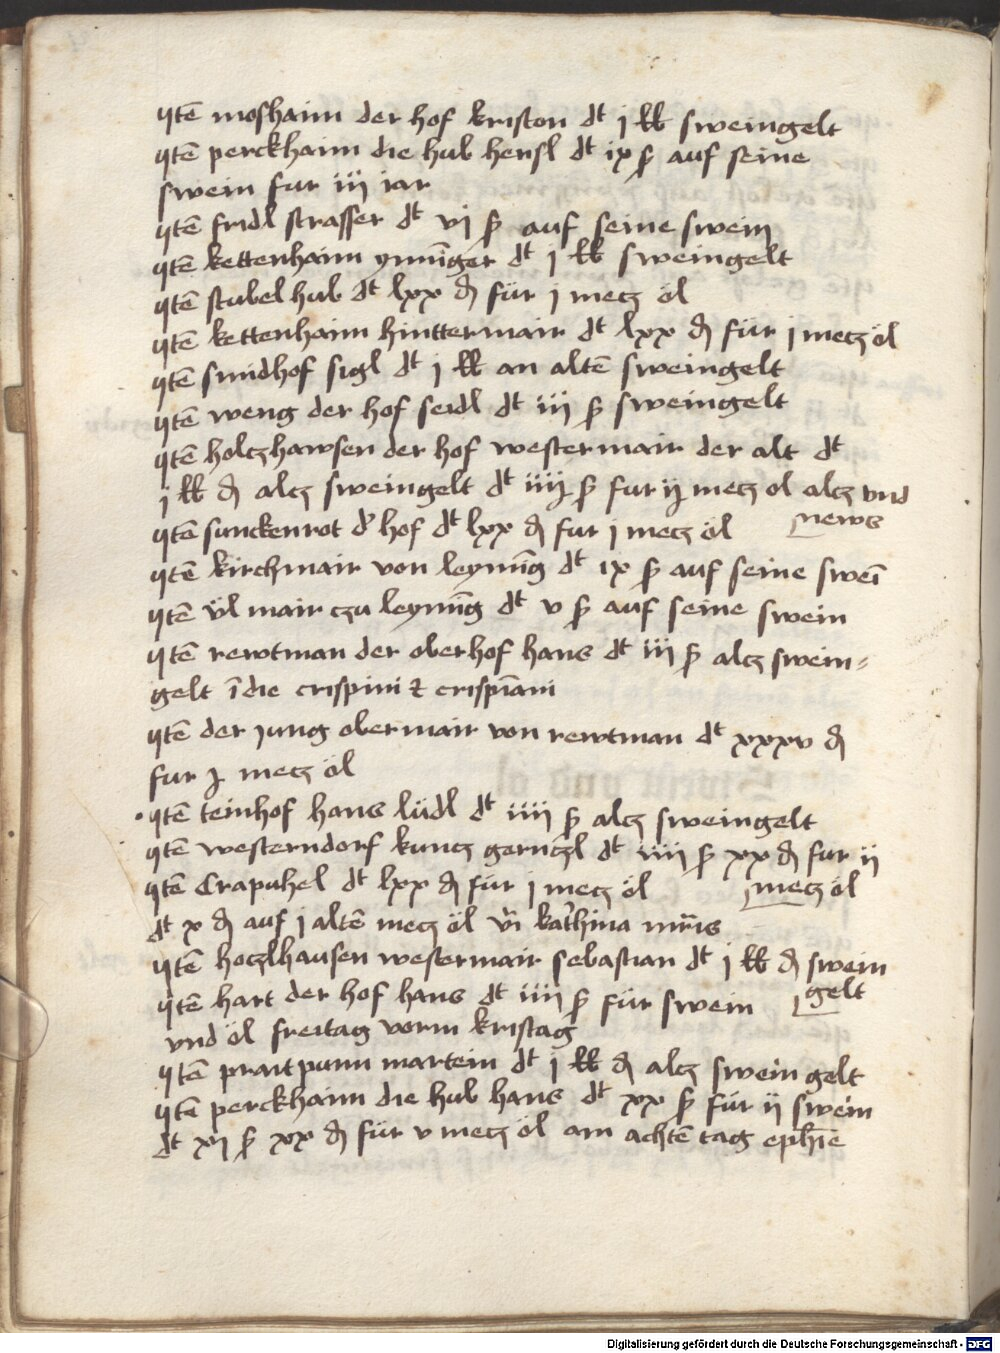 Itē moshaim der hof kriston dt j lb sweingelt
Itē perckhaim die hub hensl dt ix ß auf seine
swein fur iij iar
Itē fridl strasser dt vj ß auf seine swein
Itē kettenhaim ymīger dt j lb sweingelt
Itē stubelhub dt lxx ₰ für j mecz öl
Itē kettenhaim hinttermair dt lxx ₰ für j mecz öl
Itē smidhof sigl dt j lb an altē sweingelt
Itē weng der hof seidl dt iij ß sweingelt
Itē holczhawsen der hof westermair der alt dt
j lb ₰ alcz sweingelt dt iiij ß fur ij mecz ol alcz vnd
news
Itē sunckenrot d' hof dt lxx ₰ fur j mecz öl
Itē kirchmair von leymīg dt ix ß auf seine sweī
Itē ŭl mair czu leymīg dt v ß auf seine swein
Itē rewtman der oberhof hans dt iij ß alcz swein-
gelt ī die crispini et crispīani
Itē der jung obermair von rewtman dt xxxv ₰
fur j mecz öl
Itē teinhof hans lüdl dt iiij ß alcz sweingelt
Itē westerndorf kuncz gerniczl dt iiij ß xx ₰ fur ij
mecz öl
Itē Crapuhel dt lxx ₰ für j mecz öl
dt x ₰ auf j altē mecz öl katħina
Itē hoczlhausen westermair sebastian dt j lb ₰ swein
gelt
Itē hart der hof hans dt iiij ß für swein
vnd öl freitag vorm kristag
Itē praitpunn martein dt j lb ₰ alcz sweingelt
Itē perckhaim die hub hans dt xx ß für ij swein
dt xj ß xx ₰ für v mecz öl am achtē tag ephīe
Digitalisierung gefördert durch die Deutsche Forschungsgemeinschaft - DFG